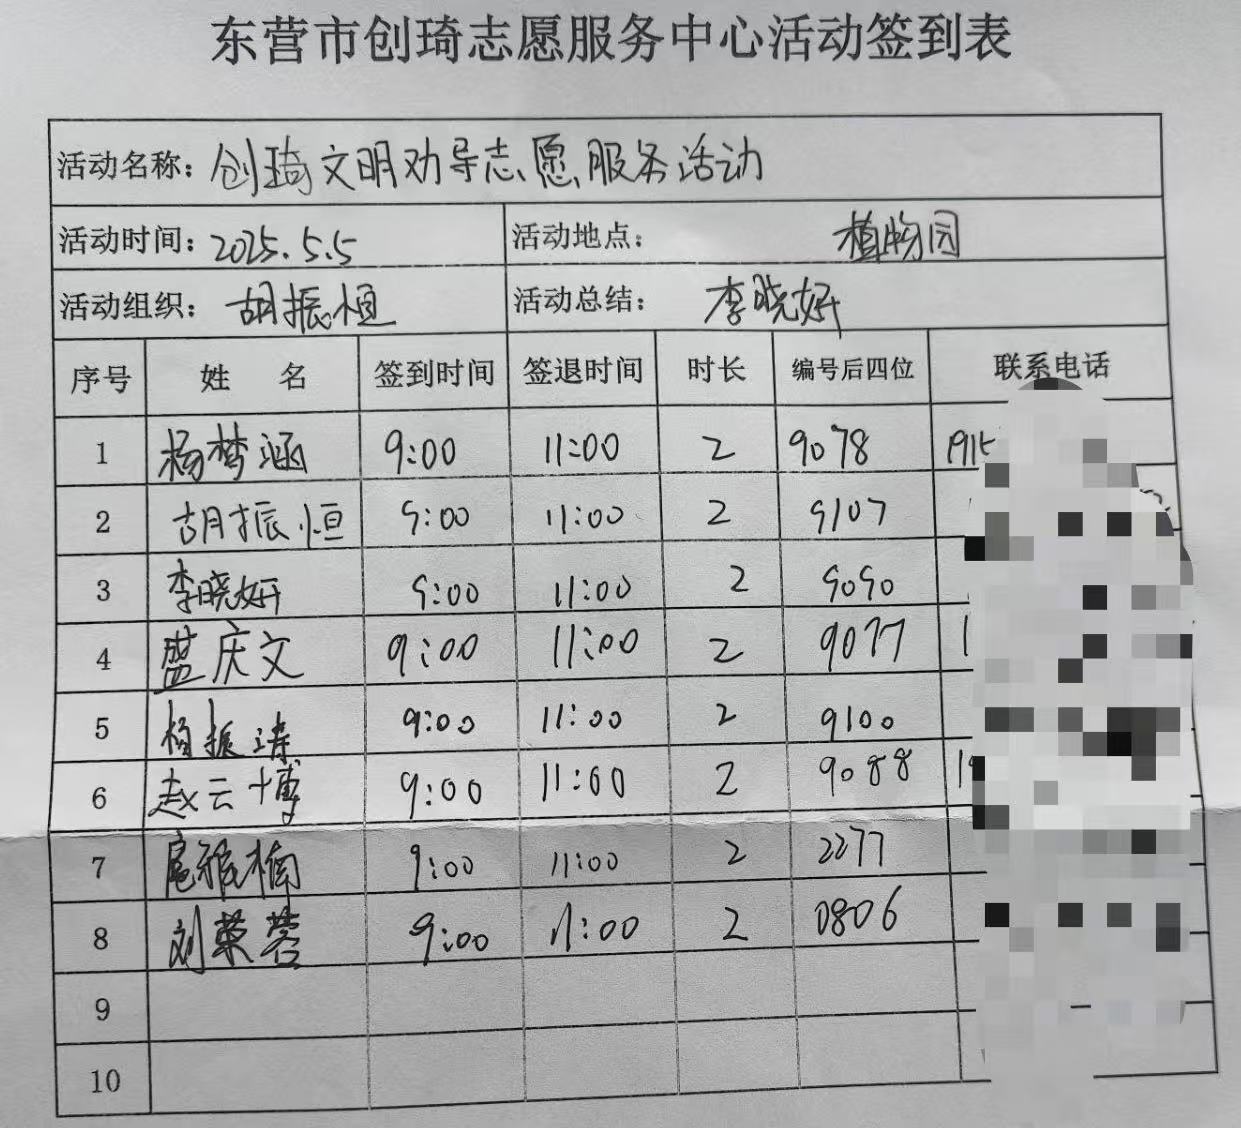 东营市创琦志愿服务中心活动签到表
活动名称: 创琦文明劝导志愿服务活动
活动时间: 2025.5.5 活动地点: 植物园
活动组织: 胡振恒 活动总结: 李晓妍
序号 姓 名 签到时间 签退时间 时长 编号后四位 联系电话
1 杨梦涵 9:00 11:00 2 9078 1915
2 胡振恒 9:00 11:00 2 9107
3 李晓妍 9:00 11:00 2 9090
4 盛庆文 9:00 11:00 2 9077 1
5 杨振涛 9:00 11:00 2 9100
6 赵云博 9:00 11:00 2 9088 1
7 扈雅楠 9:00 11:00 2 2277
8 刘荣蓉 9:00 11:00 2 0806
9
10